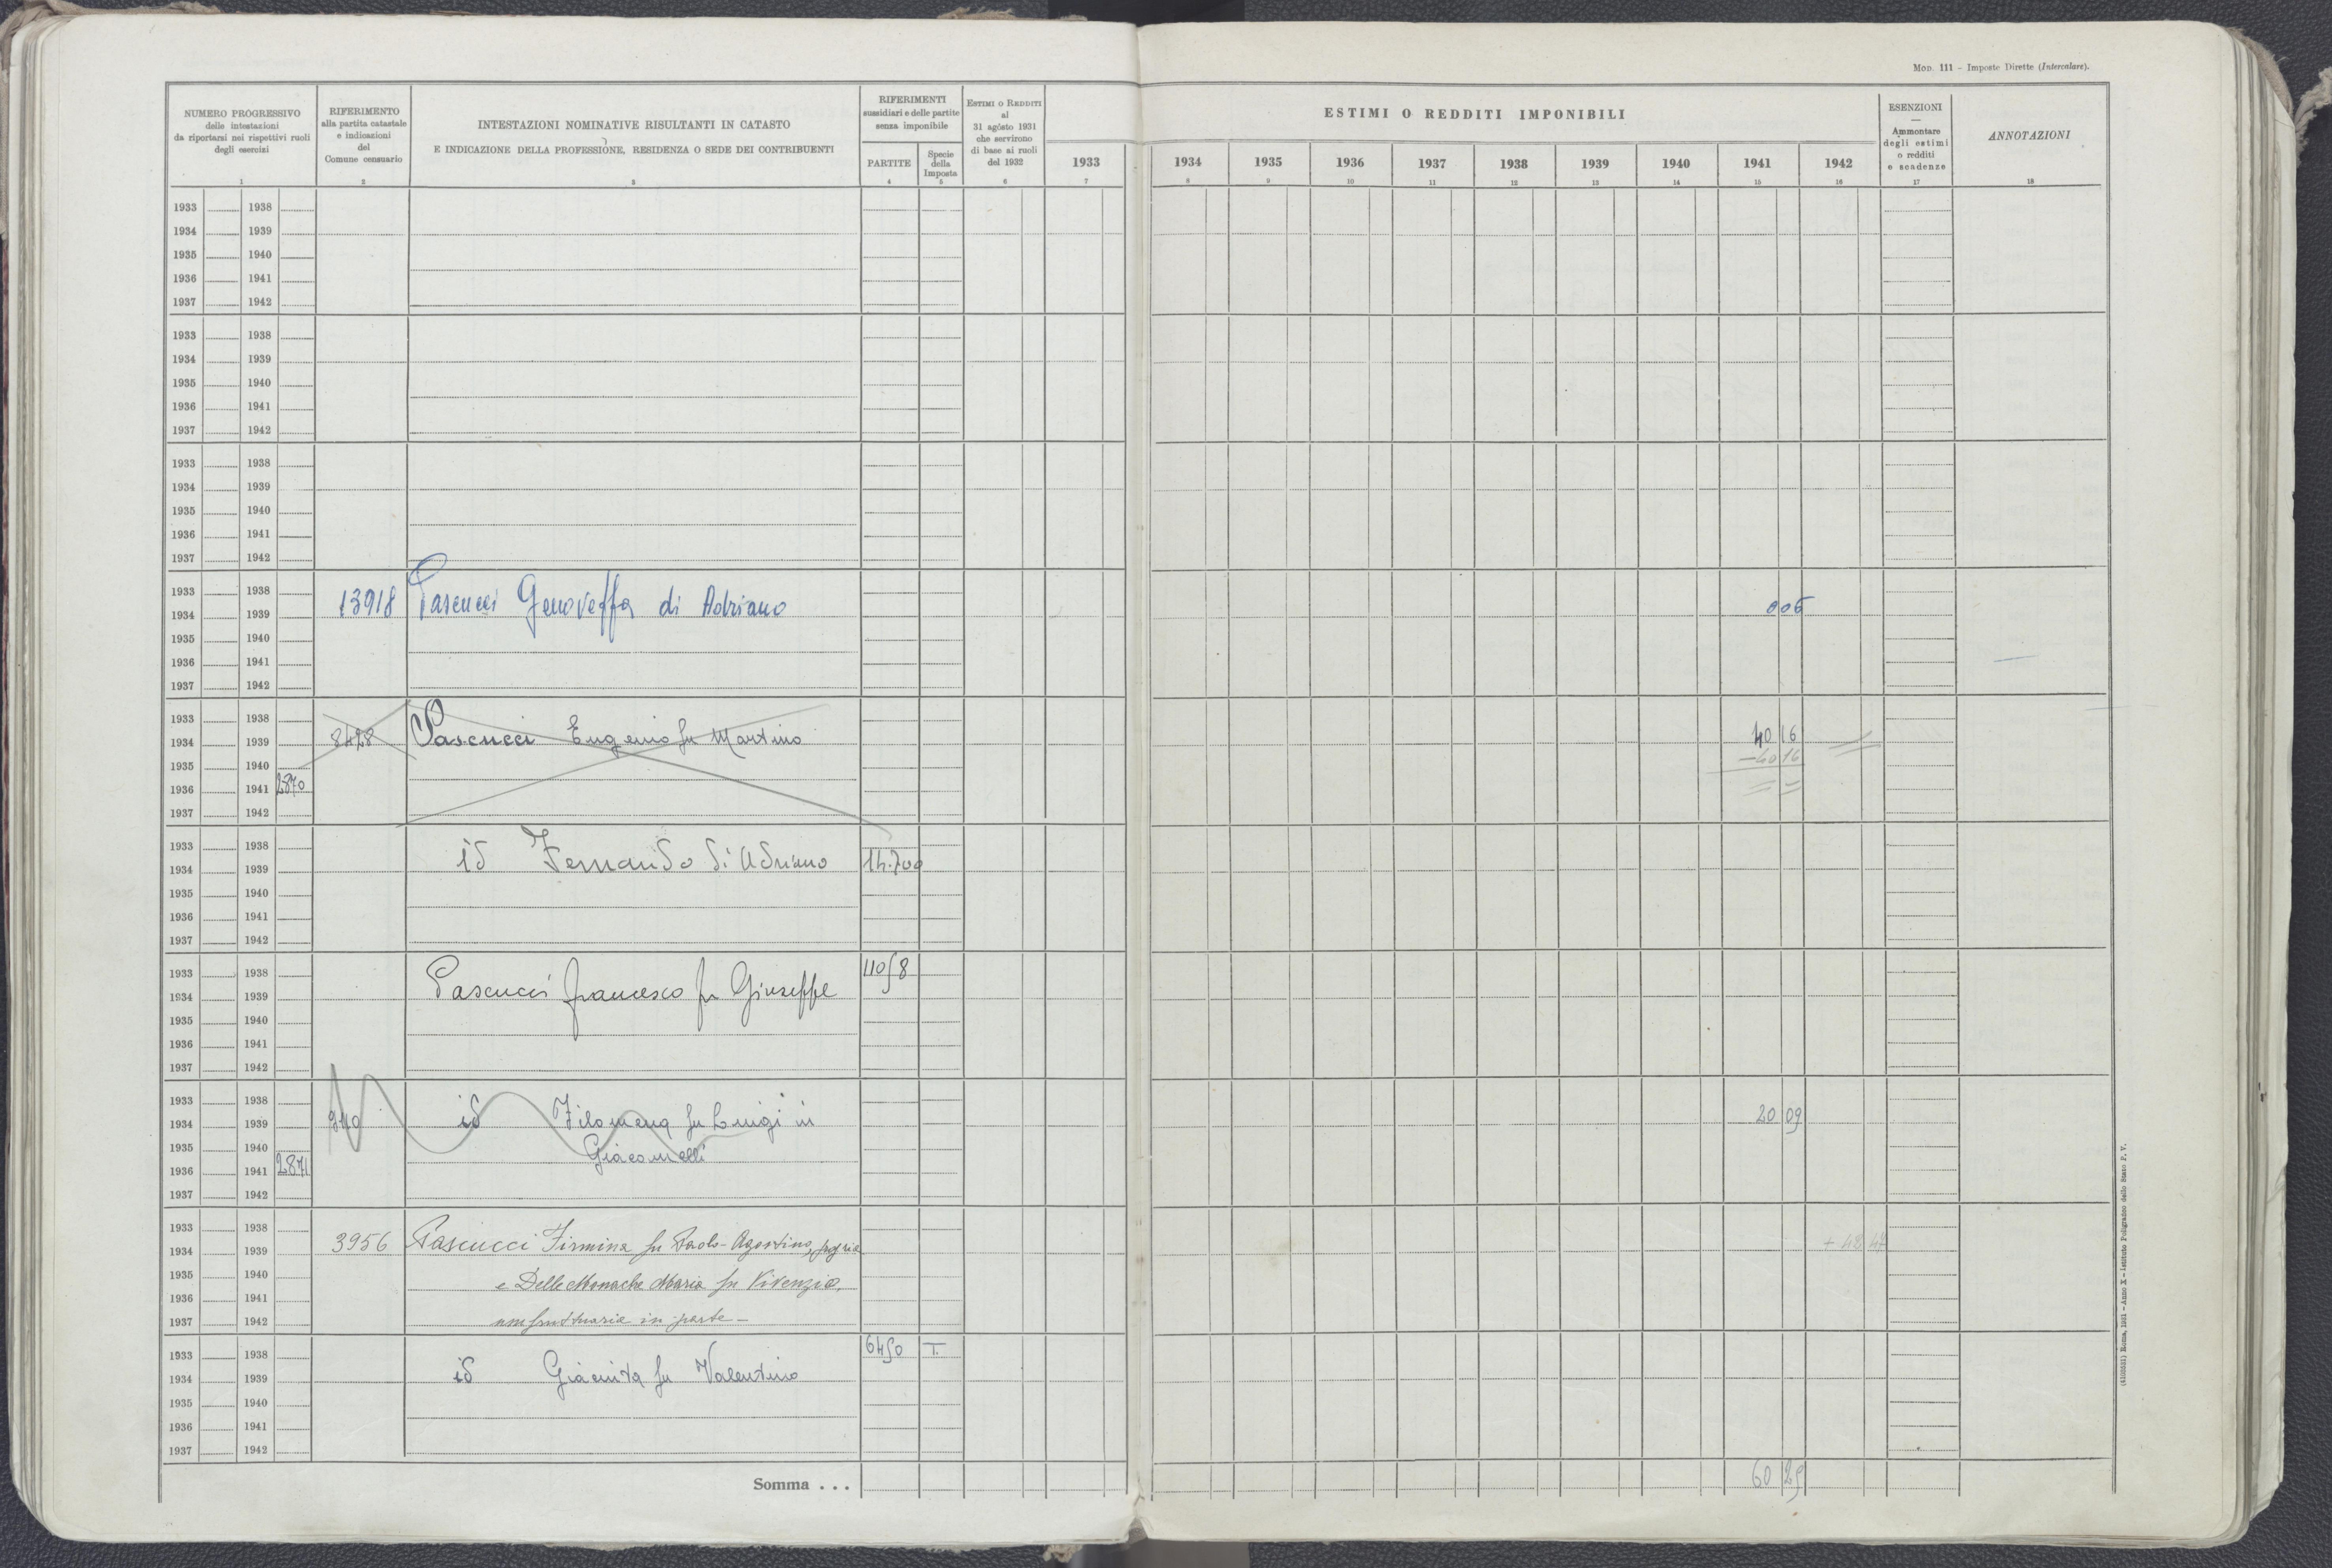 MOD. 111 - Imposte Dirette (Intercalare).
NUMERO PROGRESSIVO
delle intestazioni
da riportarsi nei rispettivi ruoli
degli esercizi
1
RIFERIMENTO
alla partita catastale
e indicazioni
del
Comune censuario
2
INTESTAZIONI NOMINATIVE RISULTANTI IN CATASTO
E INDICAZIONE DELLA PROFESSIONE, RESIDENZA O SEDE DEI CONTRIBUENTI
3
RIFERIMENTI
sussidiari e delle partite
senza imponibile
PARTITE
4
Specie
della
Imposta
5
ESTIMI O REDDITI
al
31 agósto 1931
che servirono
di base ai ruoli
del 1932
6
ESTIMI O REDDITI IMPONIBILI
1933 1934 1935 1936 1937 1938 1939 1940 1941 1942
7 8 9 10 11 12 13 14 15 16
ESENZIONI
—
Ammontare
degli estimi
o redditi
e scadenze
17
ANNOTAZIONI
18
1933 1938
1934 1939
1935 1940
1936 1941
1937 1942
1933 1938
1934 1939
1935 1940
1936 1941
1937 1942
1933 1938
1934 1939
1935 1940
1936 1941
1937 1942
1933 1938
1934 1939 13918 Pascucci Genoveffa di Adriano 0 06
1935 1940
1936 1941
1937 1942
1933 1938
1934 1939 8428 Pascucci Eugenio fu Martino 40 16
1935 1940 - 40 16
1936 1941 2870 = =
1937 1942
1933 1938
1934 1939 id Fernando di Adriano 14.700
1935 1940
1936 1941
1937 1942
1933 1938 11058
1934 1939 Pascucci Francesco fu Giuseppe
1935 1940
1936 1941
1937 1942
1933 1938
1934 1939 940 id Filomena fu Luigi in 20 09
1935 1940 Giacomelli
1936 1941 2871
1937 1942
1933 1938
1934 1939 3956 Pascucci Firmina fu Paolo-Agostino, propria + 42 47
1935 1940 e Delle Monache Maria fu Vivenzio,
1936 1941
1937 1942 usufruttuaria in parte -
1933 1938 6450 T.
1934 1939 id Giacinta fu Valentino
1935 1940
1936 1941
1937 1942
Somma . . . 60 25
(4103531) Roma, 1931 - Anno X - Istituto Poligrafico dello Stato P. V.